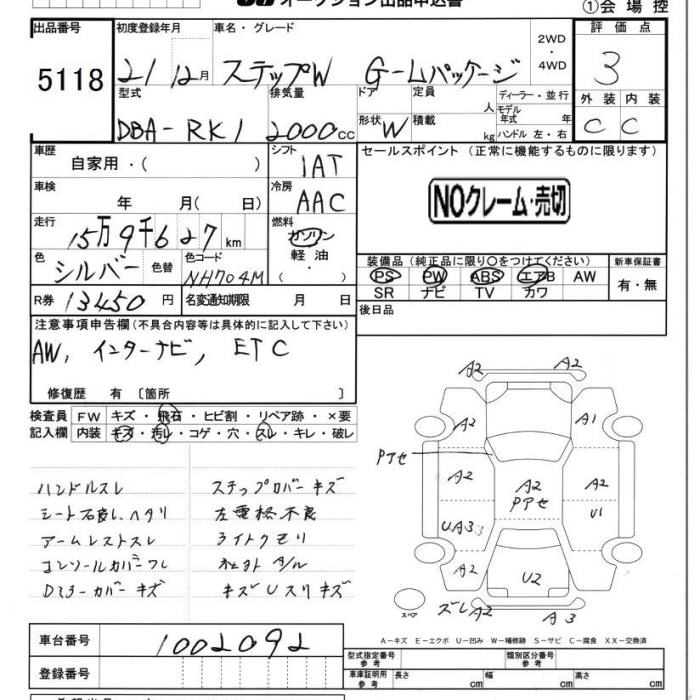 オークション出品申込書 ①会場控
出品番号 初度登録年月 車名・グレード 2WD・4WD 評価点
5118 21 12月 ステップW G-ームパッケージ 3
型式 排気量 ドア 定員 人 ディーラー・並行 外装 内装
DBA-RK1 2000cc 形状 W 積載 kg モデル年式 年 ハンドル 左・右 C C
車歴 自家用・( ) シフト IAT セールスポイント (正常に機能するものに限ります)
車検 年 月( 日) 冷房 AAC NOクレーム・売切
走行 15万9千627km 燃料 ガソリン 軽油 ・( )
装備品(純正品に限り○をつけてください) 新車保証書
色 シルバー 色替 色コード NH704M PS PW ABS エアB AW 有・無
SR ナビ TV カワ
R券 13450円 名変通知期限 月 日 後日品
注意事項申告欄(不具合内容等は具体的に記入して下さい)
AW, インターナビ, ETC
修復歴 有 [箇所 ]
検査員 FW キズ・飛石・ヒビ割・リペア跡・×要
記入欄 内装 キズ・汚レ・コゲ・穴・スレ・キレ・破レ
ハンドルスレ ステップカバーキズ
シート ヘタリ 左電格不良
アームレストスレ ライトクモリ
コンソールカバーワレ
キズUスリキズ
A2 A2
A2 A1
Pアセ
A2 A2 Pアセ A2
UA3 U1
A2 U2
スペア ズレ A2 A3
A-キズ E-エクボ U-凹み W-補修跡 S-サビ C-腐食 XX-交換済
車台番号 1002092
型式指定番号 参考 類別区分番号 参考
登録番号 車庫証明用 参考 長さ cm 幅 cm 高さ cm